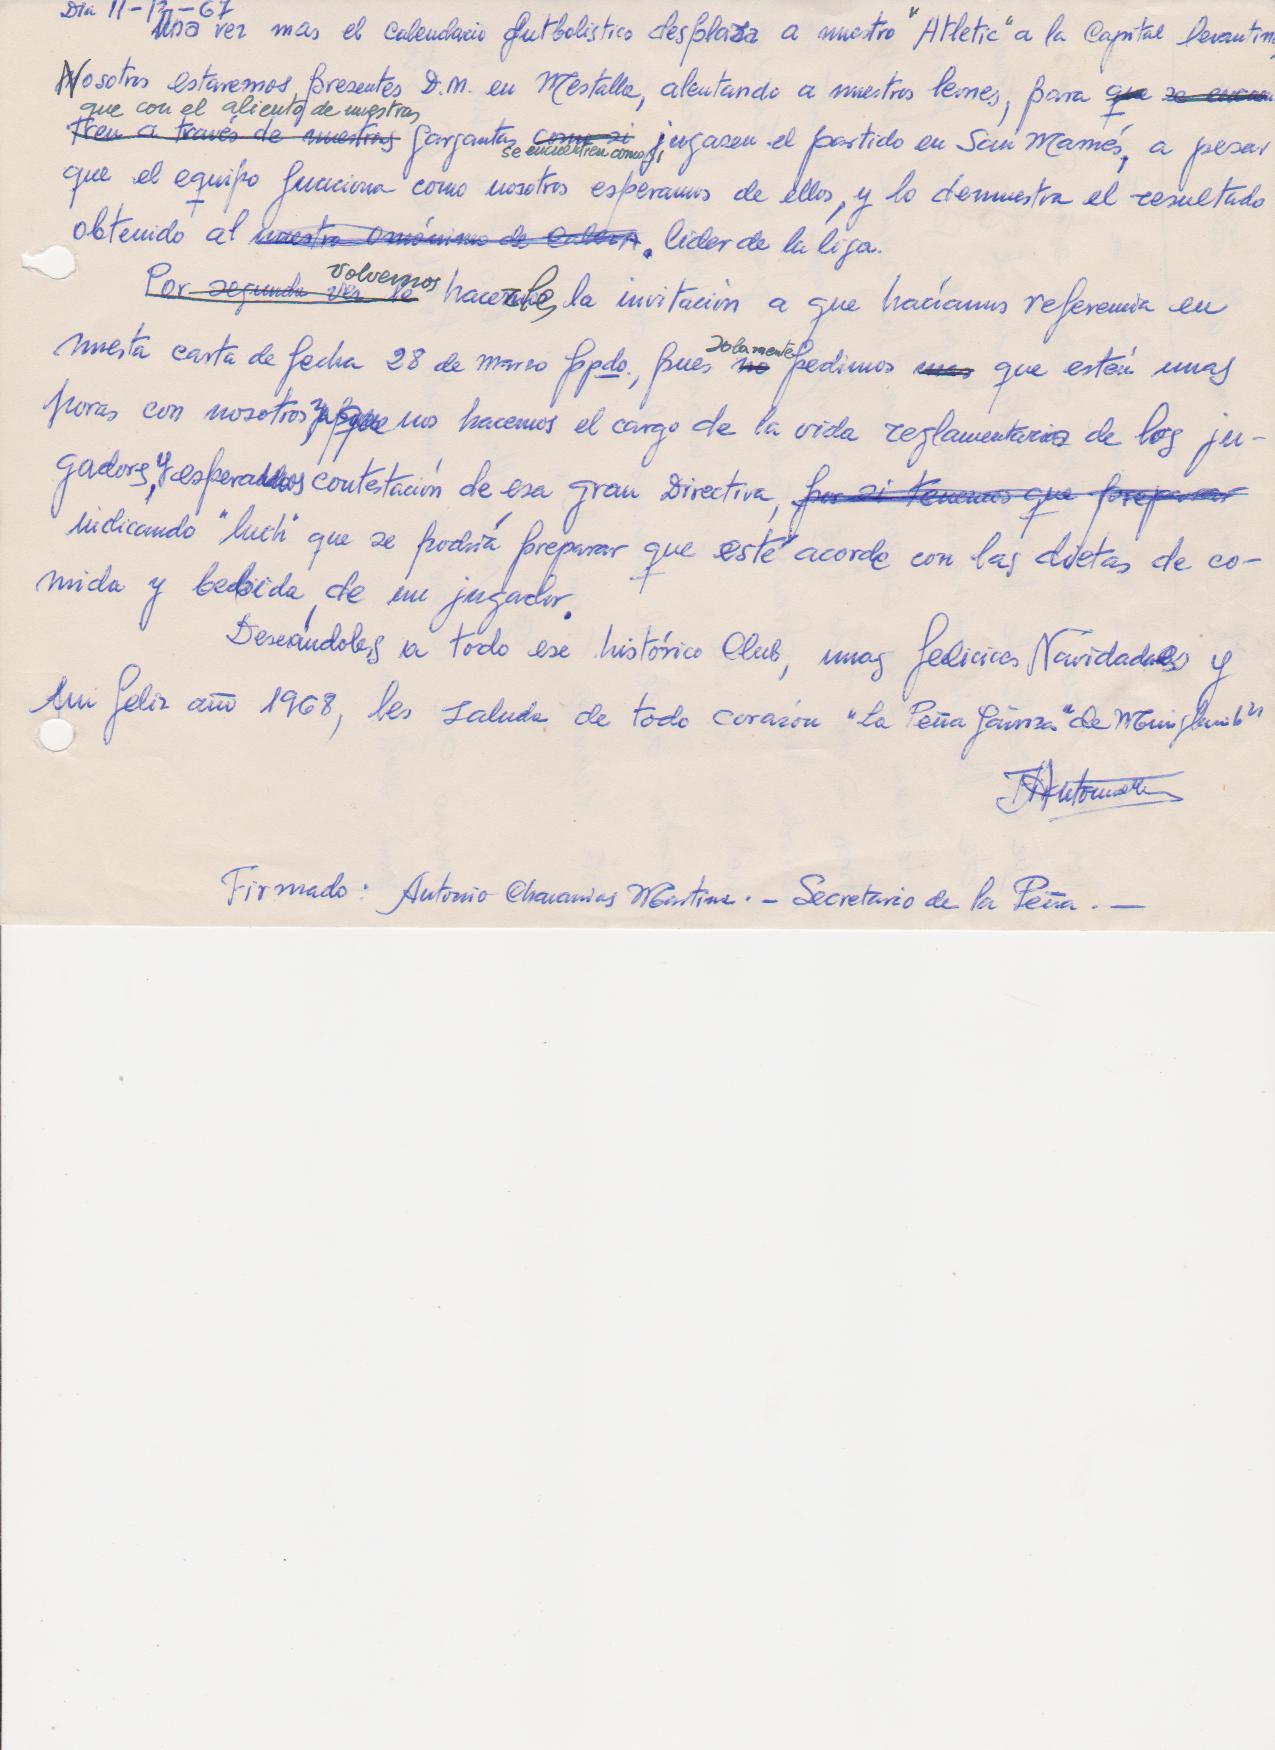 Dia 11-12-67
Una vez mas el calendario futbolistico desplaza a nuestro "Atletic" a la Capital levantina
Nosotros estaremos presentes D.M. en Mestalla, alentando a nuestros leones, para que se encuen
que con el aliento de nuestras
tren a través de nuestras gargantas como si jugasen el partido en San Mamés, a pesar
se encuentren como si
que el equipo funciona como nosotros esperamos de ellos, y lo demuestra el resultado
obtenido al nuestro omónimo de lider de la liga.
volvemos
Por segunda vez le hacerles la invitación a que hacíamos referencia en
nuesta carta de fecha 28 de marzo ppdo., pues no pedimos mas que estén unas
solamente
horas con nosotros, nos hacemos el cargo de la vida reglamentaria de los ju-
gadores, y esperamos contestación de esa gran Directiva, por si tenemos que preparar
indicando "luch" que se podria preparar que esté acorde con las dietas de co-
mida y bebida, de un jugador.
Deseándoles a todo ese histórico Club, unas felicices Navidades y
un feliz año 1968, les saluda de todo corazón "La Peña de
Firmado: Antonio Martinez.- Secretario de la Peña.-